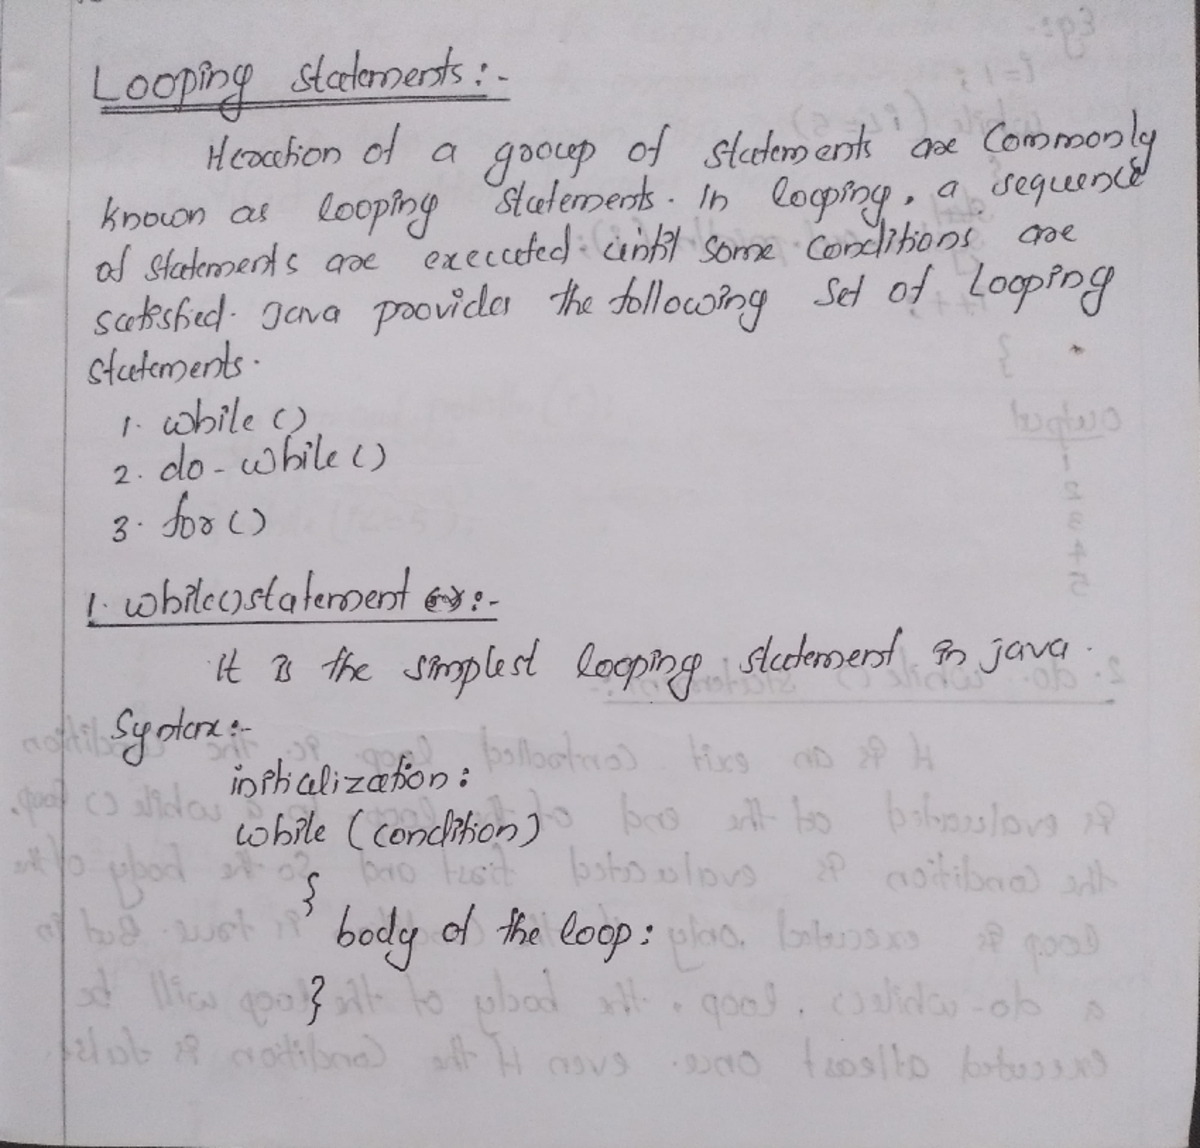 Looping statements:-
Iteration of a group of statements are commonly
known as looping statements. In looping, a sequence
of statements are executed until some conditions are
satisfied. Java provides the following set of Looping
statements.
1. while ()
2. do-while ()
3. for ()
1. while() statement :-
It is the simplest looping statement in java.
Syntax:-
initialization:
while (condition)
{
body of the loop:
}